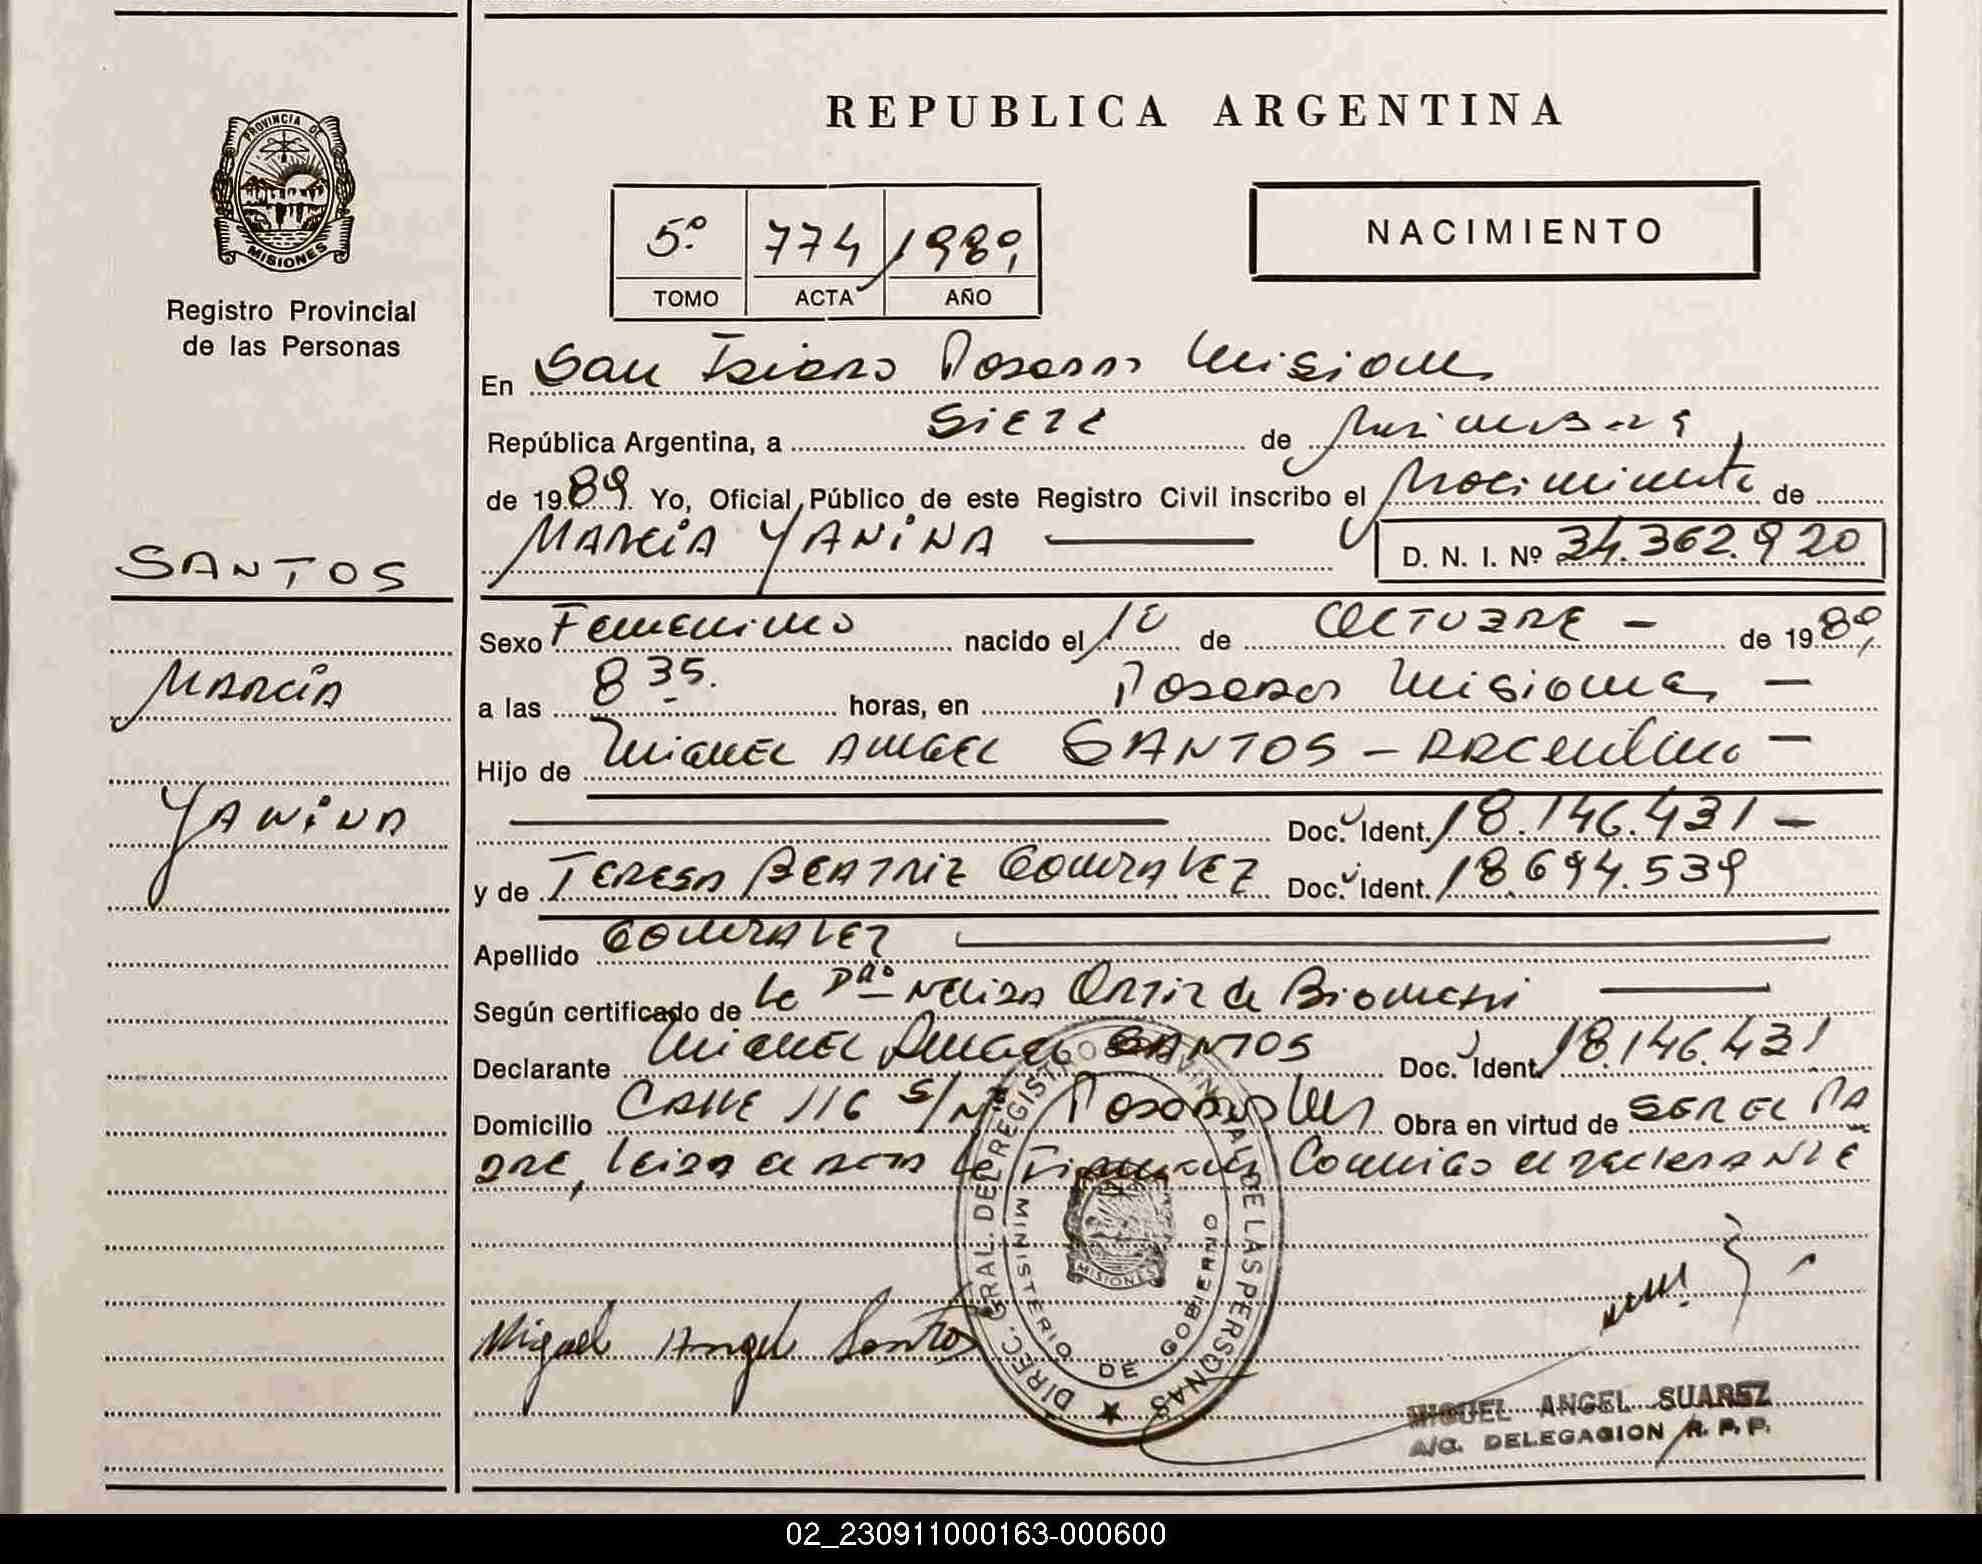 REPUBLICA ARGENTINA
PROVINCIA DE MISIONES
Registro Provincial
de las Personas
5º 774 1989
TOMO ACTA AÑO
NACIMIENTO
En San Isidro Posadas Misiones
República Argentina, a SIETE de Noviembre
de 1989. Yo, Oficial Público de este Registro Civil inscribo el Nacimiento de
MARCIA YANINA D. N. I. Nº 34.362.920
SANTOS
MARCIA
YANINA
Sexo Femenino nacido el 10 de OCTUBRE - de 1989
a las 8 35. horas, en Posadas Misiones -
Hijo de MIGUEL ANGEL SANTOS - ARGENTINO -
Doc. Ident. 18.146.431 -
y de TERESA BEATRIZ GONZALEZ Doc. Ident. 18.694.539
Apellido GONZALEZ
Según certificado de la Dra. Ortiz de
Declarante MIGUEL ANGEL SANTOS Doc. Ident. 18.146.431
Domicilio CALLE 116 S/Nº Posadas Obra en virtud de SER EL PA
DRE, leida el acta la Firman Conmigo el declarante
DIREC. GRAL. DEL REGISTRO PROVINCIAL DE LAS PERSONAS
MINISTERIO DE GOBIERNO
MISIONES
Miguel Angel Santos
MIGUEL ANGEL SUAREZ
A/C. DELEGACION R. P. P.
02_230911000163-000600